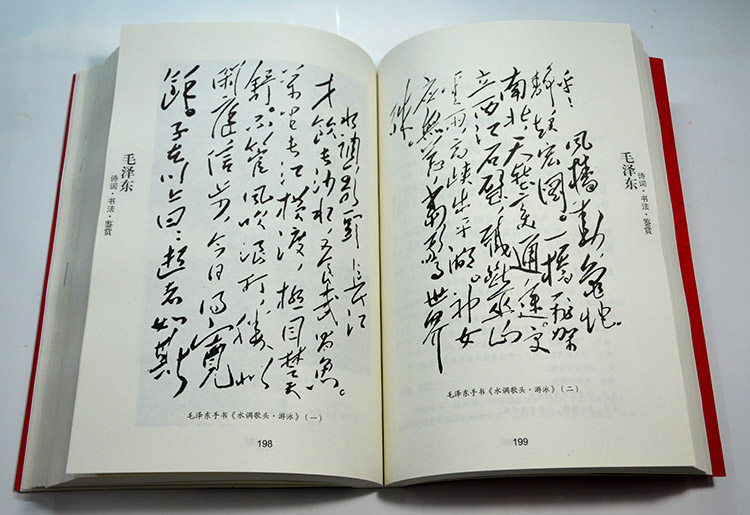 毛泽东
诗词·书法·鉴赏
水调歌頭 长江
才饮长沙水,又食武昌魚。
萬里长江横渡,极目楚天
舒。不管風吹浪打,勝似
闲庭信步,今日得寬
餘。子在川上曰:逝者如斯
毛泽东手书《水调歌头·游泳》(一)
198
毛泽东
诗词·书法·鉴赏
風樯動,龟蛇
静,起宏圖。一橋飛架
南北,天堑变通途。更
立西江石壁,截断巫山
雲雨,高峡出平湖。神女
应無恙,當驚世界
殊
毛泽东手书《水调歌头·游泳》(二)
199